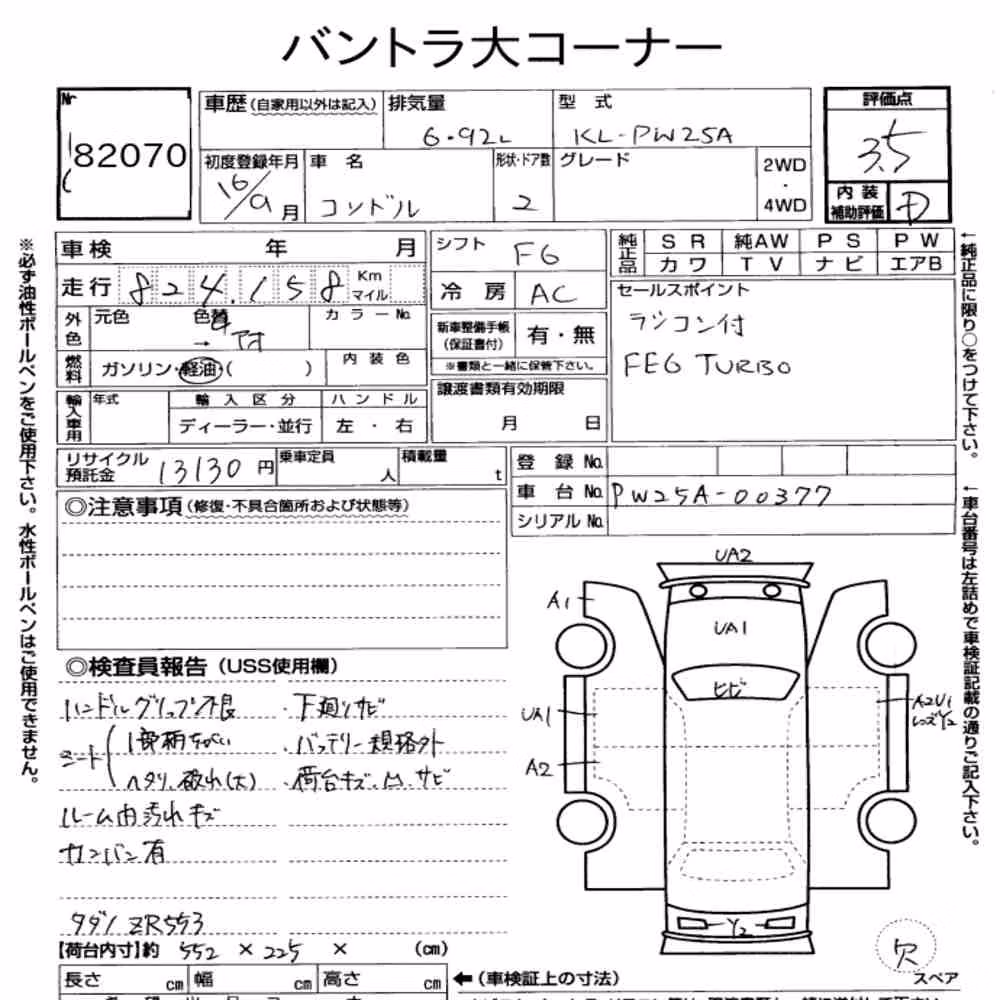 バントラ大コーナー
Nr
82070
車歴(自家用以外は記入)
排気量
6.92L
型式
KL-PW25A
評価点
3.5
初度登録年月
16/9月
車名
コンドル
形状・ドア数
2
グレード
2WD
・
4WD
内装
補助評価
D
車検 年 月
シフト
F6
純正品
SR 純AW PS PW
カワ TV ナビ エアB
走行 824,158 Km
マイル
冷房
AC
セールスポイント
ラジコン付
FE6 TURBO
外色
元色
色替
→ アオ
カラーNo.
新車整備手帳
(保証書付)
有・無
※書類と一緒に保管下さい。
燃料
ガソリン・軽油・( )
内装色
譲渡書類有効期限
月 日
輸入車用
年式
輸入区分
ハンドル
ディーラー・並行
左・右
リサイクル
預託金
13130円
乗車定員
人
積載量
t
登録No.
車台No.
PW25A-00377
シリアルNo.
◎注意事項(修復・不具合箇所および状態等)
◎検査員報告(USS使用欄)
ハンドルグリップ不良 ・下廻りサビ
シート
1部柄ちがい ・バッテリー規格外
ヘタリ、破れ(大) ・荷台キズ、凹、サビ
ルーム内汚れキズ
カンバン有
タダノ ZR553
【荷台内寸】約 552 × 225 × (cm)
長さ cm 幅 cm 高さ cm
←(車検証上の寸法)
UA2
A1
UA1
ヒビ
UA1
A2
A2U1
レンズY2
Y2
欠
スペア
※必ず油性ボールペンをご使用下さい。水性ボールペンはご使用できません。
←純正品に限り○をつけて下さい。
←車台番号は左詰めで車検証記載の通りご記入下さい。